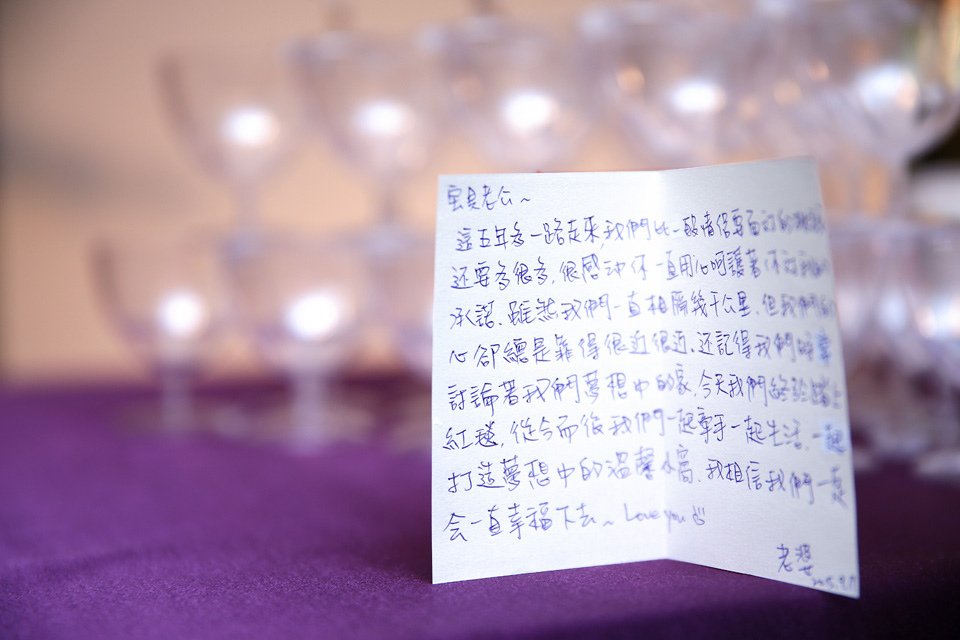 寶貝老公~
這五年多一路走來,我們比一般情侶要面對的
還要多很多,很感動你一直用心呵護著你對我的
承諾.雖然我們一直相隔幾千公里.但我們的
心卻總是靠得很近很近.還記得我們時常
討論著我們夢想中的家,今天我們終於踏上
紅毯,從今而後我們一起牽手一起生活,一起
打造夢想中的溫馨小窩.我相信我們一定
會一直幸福下去~ Love you
老婆